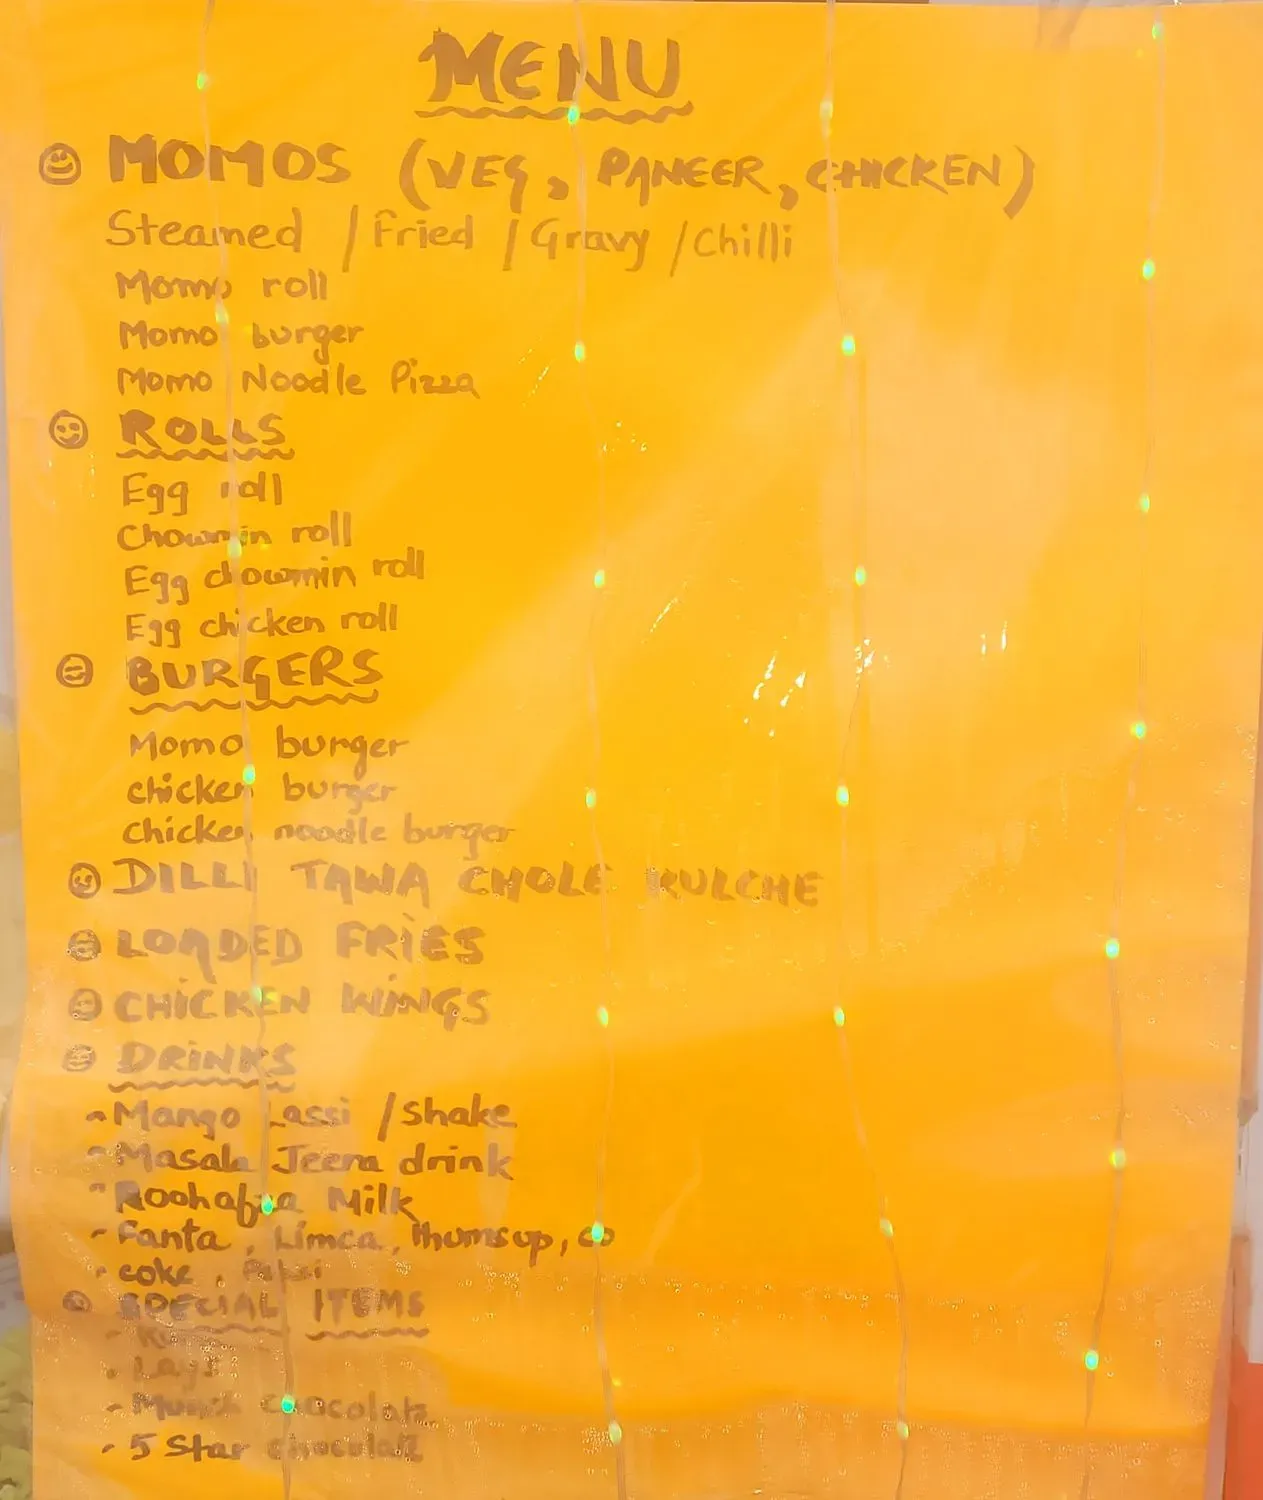 MENU
MOMOS (VEG, PANEER, CHICKEN)
Steamed / Fried / Gravy / Chilli
Momo roll
Momo burger
Momo Noodle Pizza
ROLLS
Egg roll
Chowmin roll
Egg chowmin roll
Egg chicken roll
BURGERS
Momo burger
chicken burger
chicken noodle burger
DILLI TAWA CHOLE KULCHE
LOADED FRIES
CHICKEN WINGS
DRINKS
- Mango Lassi / Shake
- Masala Jeera drink
- Roohafza Milk
- Fanta, Limca, Thumsup, co
- coke, Pepsi
SPECIAL ITEMS
- Lays
- Munch chocolate
- 5 Star chocolate